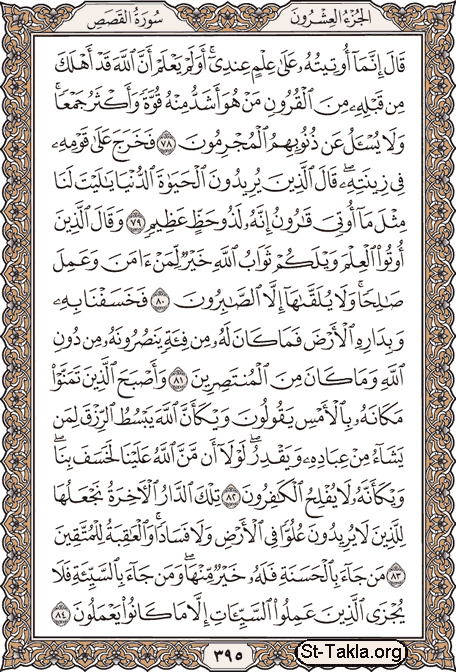 الجزء العشرون سورة القصص
قَالَ إِنَّمَآ أُوتِيتُهُۥ عَلَىٰ عِلْمٍ عِندِىٓ ۚ أَوَلَمْ يَعْلَمْ أَنَّ ٱللَّهَ قَدْ أَهْلَكَ
مِن قَبْلِهِۦ مِنَ ٱلْقُرُونِ مَنْ هُوَ أَشَدُّ مِنْهُ قُوَّةً وَأَكْثَرُ جَمْعًا ۚ
وَلَا يُسْـَٔلُ عَن ذُنُوبِهِمُ ٱلْمُجْرِمُونَ ٧٨ فَخَرَجَ عَلَىٰ قَوْمِهِۦ
فِى زِينَتِهِۦ ۖ قَالَ ٱلَّذِينَ يُرِيدُونَ ٱلْحَيَوٰةَ ٱلدُّنْيَا يَـٰلَيْتَ لَنَا
مِثْلَ مَآ أُوتِىَ قَـٰرُونُ إِنَّهُۥ لَذُو حَظٍّ عَظِيمٍ ٧٩ وَقَالَ ٱلَّذِينَ
أُوتُوا۟ ٱلْعِلْمَ وَيْلَكُمْ ثَوَابُ ٱللَّهِ خَيْرٌ لِّمَنْ ءَامَنَ وَعَمِلَ
صَـٰلِحًا ۚ وَلَا يُلَقَّىٰهَآ إِلَّا ٱلصَّـٰبِرُونَ ٨٠ فَخَسَفْنَا بِهِۦ
وَبِدَارِهِ ٱلْأَرْضَ فَمَا كَانَ لَهُۥ مِن فِئَةٍ يَنصُرُونَهُۥ مِن دُونِ
ٱللَّهِ وَمَا كَانَ مِنَ ٱلْمُنتَصِرِينَ ٨١ وَأَصْبَحَ ٱلَّذِينَ تَمَنَّوْا۟
مَكَانَهُۥ بِٱلْأَمْسِ يَقُولُونَ وَيْكَأَنَّ ٱللَّهَ يَبْسُطُ ٱلرِّزْقَ لِمَن
يَشَآءُ مِنْ عِبَادِهِۦ وَيَقْدِرُ ۖ لَوْلَآ أَن مَّنَّ ٱللَّهُ عَلَيْنَا لَخَسَفَ بِنَا ۖ
وَيْكَأَنَّهُۥ لَا يُفْلِحُ ٱلْكَـٰفِرُونَ ٨٢ تِلْكَ ٱلدَّارُ ٱلْـَٔاخِرَةُ نَجْعَلُهَا
لِلَّذِينَ لَا يُرِيدُونَ عُلُوًّا فِى ٱلْأَرْضِ وَلَا فَسَادًا ۚ وَٱلْعَـٰقِبَةُ لِلْمُتَّقِينَ
٨٣ مَن جَآءَ بِٱلْحَسَنَةِ فَلَهُۥ خَيْرٌ مِّنْهَا ۖ وَمَن جَآءَ بِٱلسَّيِّئَةِ فَلَا
يُجْزَى ٱلَّذِينَ عَمِلُوا۟ ٱلسَّيِّـَٔاتِ إِلَّا مَا كَانُوا۟ يَعْمَلُونَ ٨٤
٣٩٥
St-Takla.org